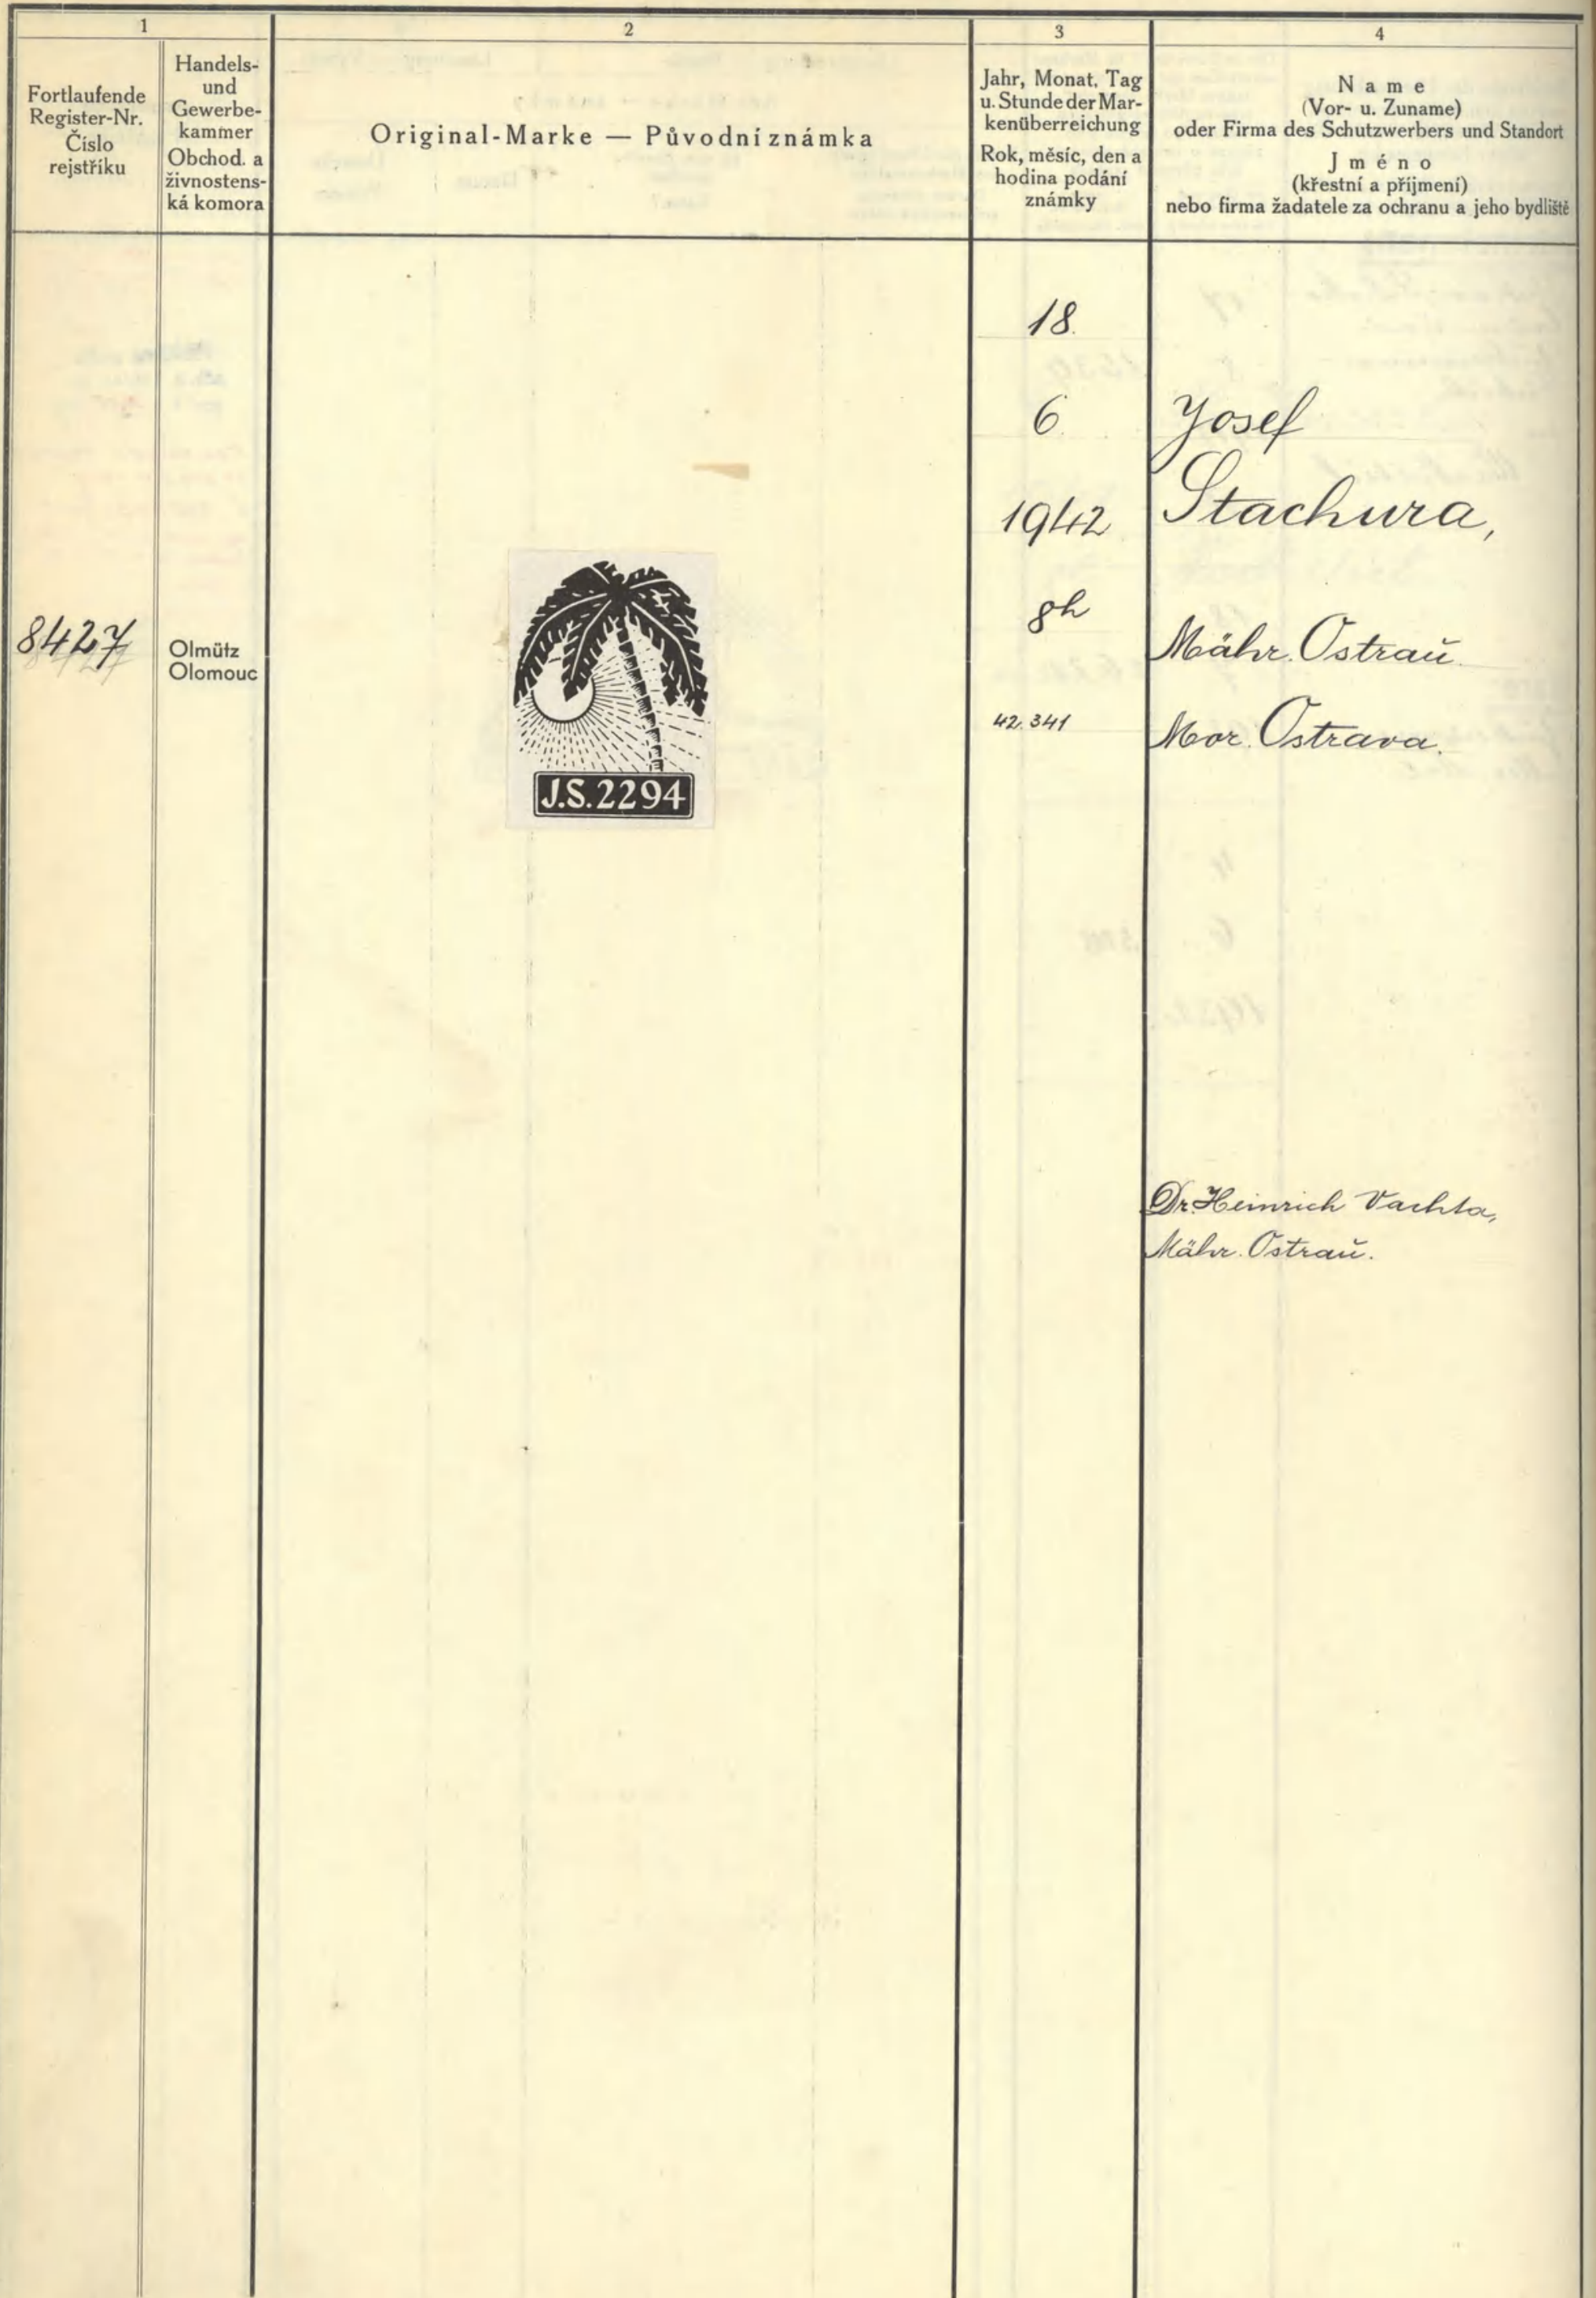 1
Fortlaufende
Register-Nr.
Číslo
rejstříku
Handels-
und
Gewerbe-
kammer
Obchod. a
živnostens-
ká komora
2
Original-Marke — Původní známka
3
Jahr, Monat, Tag
u. Stunde der Mar-
kenüberreichung
Rok, měsíc, den a
hodina podání
známky
4
Name
(Vor- u. Zuname)
oder Firma des Schutzwerbers und Standort
Jméno
(křestní a příjmení)
nebo firma žadatele za ochranu a jeho bydliště
8427
Olmütz
Olomouc
J.S.2294
18.
6.
1942
8h
42.341
Josef
Stachura,
Mähr. Ostraŭ.
Mor. Ostrava.
Dr. Heinrich Vachta,
Mähr. Ostraŭ.